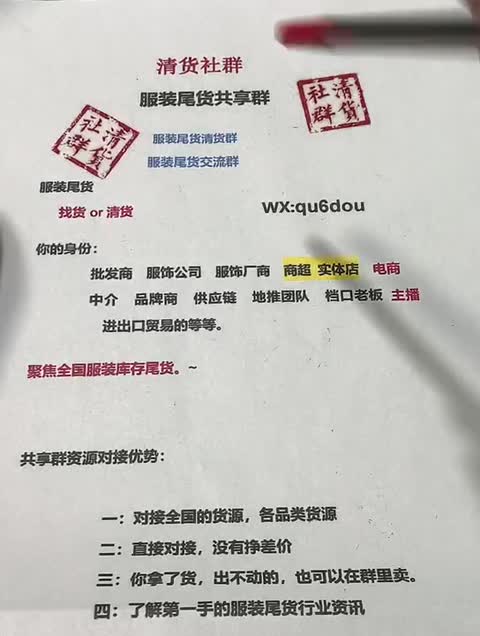 清货社群
服装尾货共享群
清货社群
清货社群
服装尾货清货群
服装尾货交流群
服装尾货
找货 or 清货
WX:qu6dou
你的身份：
批发商 服饰公司 服饰厂商 商超 实体店 电商
中介 品牌商 供应链 地推团队 档口老板 主播
进出口贸易的等等。
聚焦全国服装库存尾货。~
共享群资源对接优势：
一：对接全国的货源，各品类货源
二：直接对接，没有挣差价
三：你拿了货，出不动的，也可以在群里卖。
四：了解第一手的服装尾货行业资讯